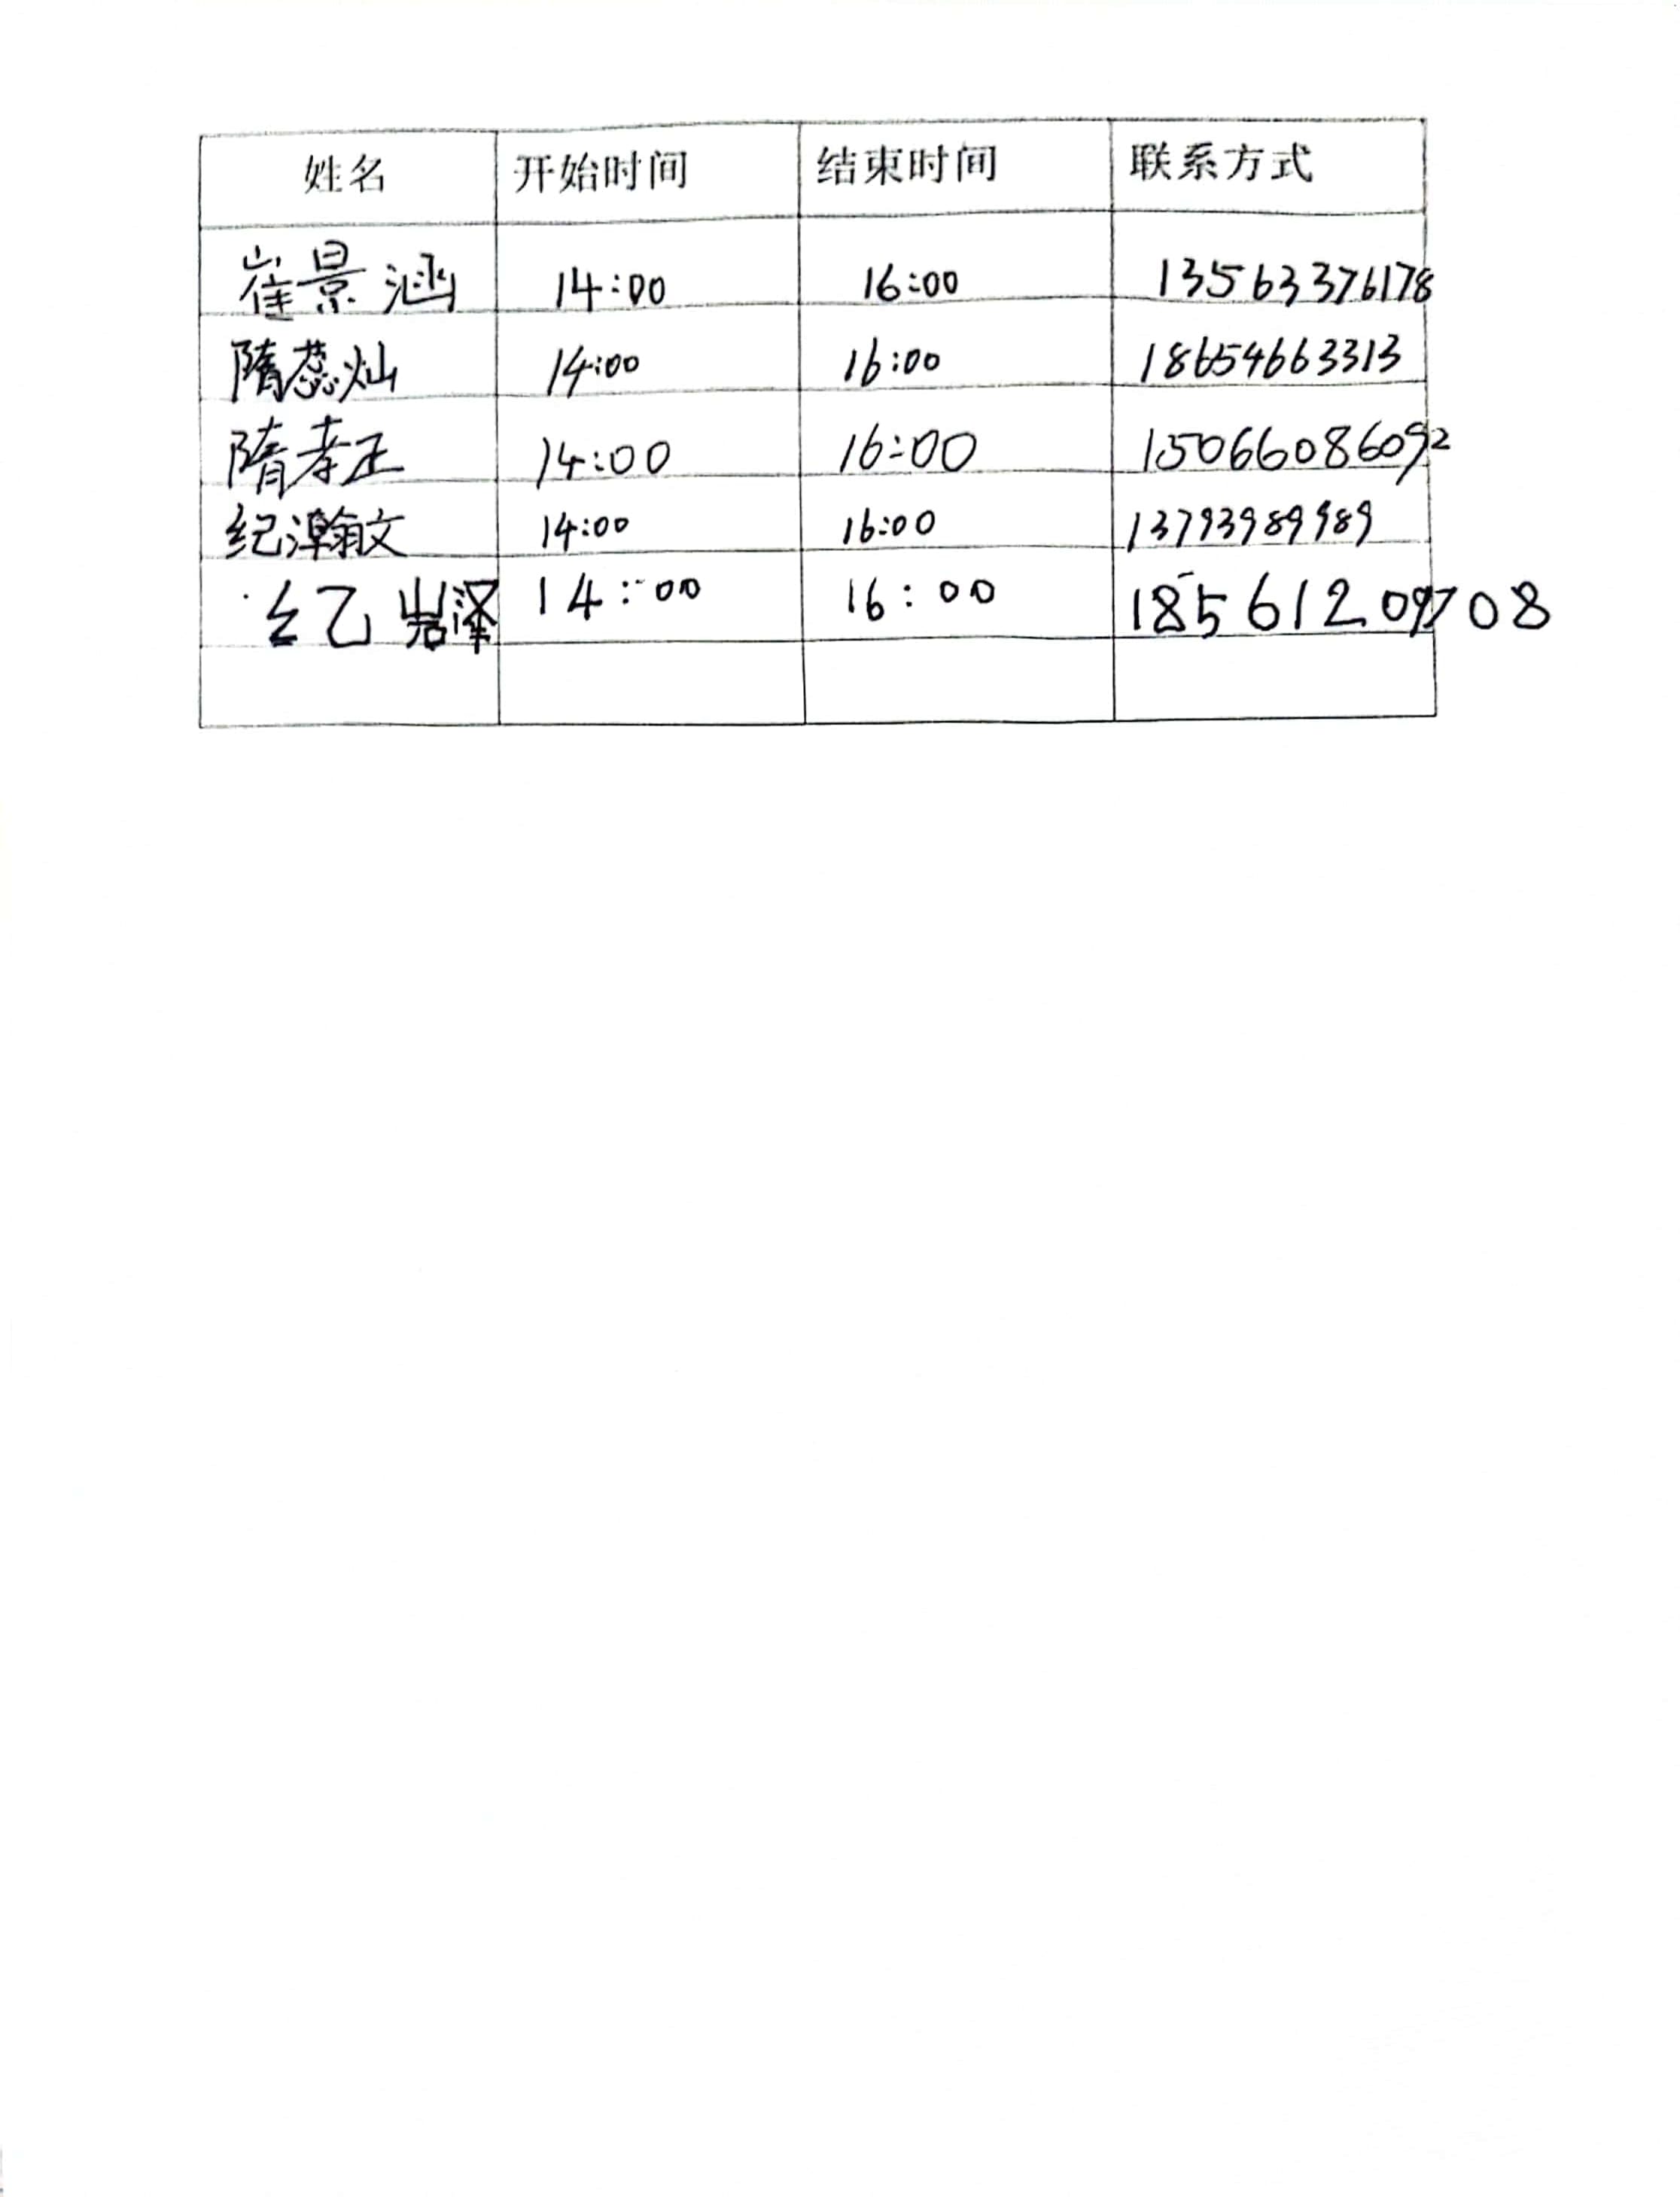 姓名 开始时间 结束时间 联系方式
崔景涵 14:00 16:00 13563376178
隋蕊灿 14:00 16:00 18654663313
隋孝正 14:00 16:00 15066086092
纪瀚文 14:00 16:00 13793989989
纪岩泽 14:00 16:00 18561209708